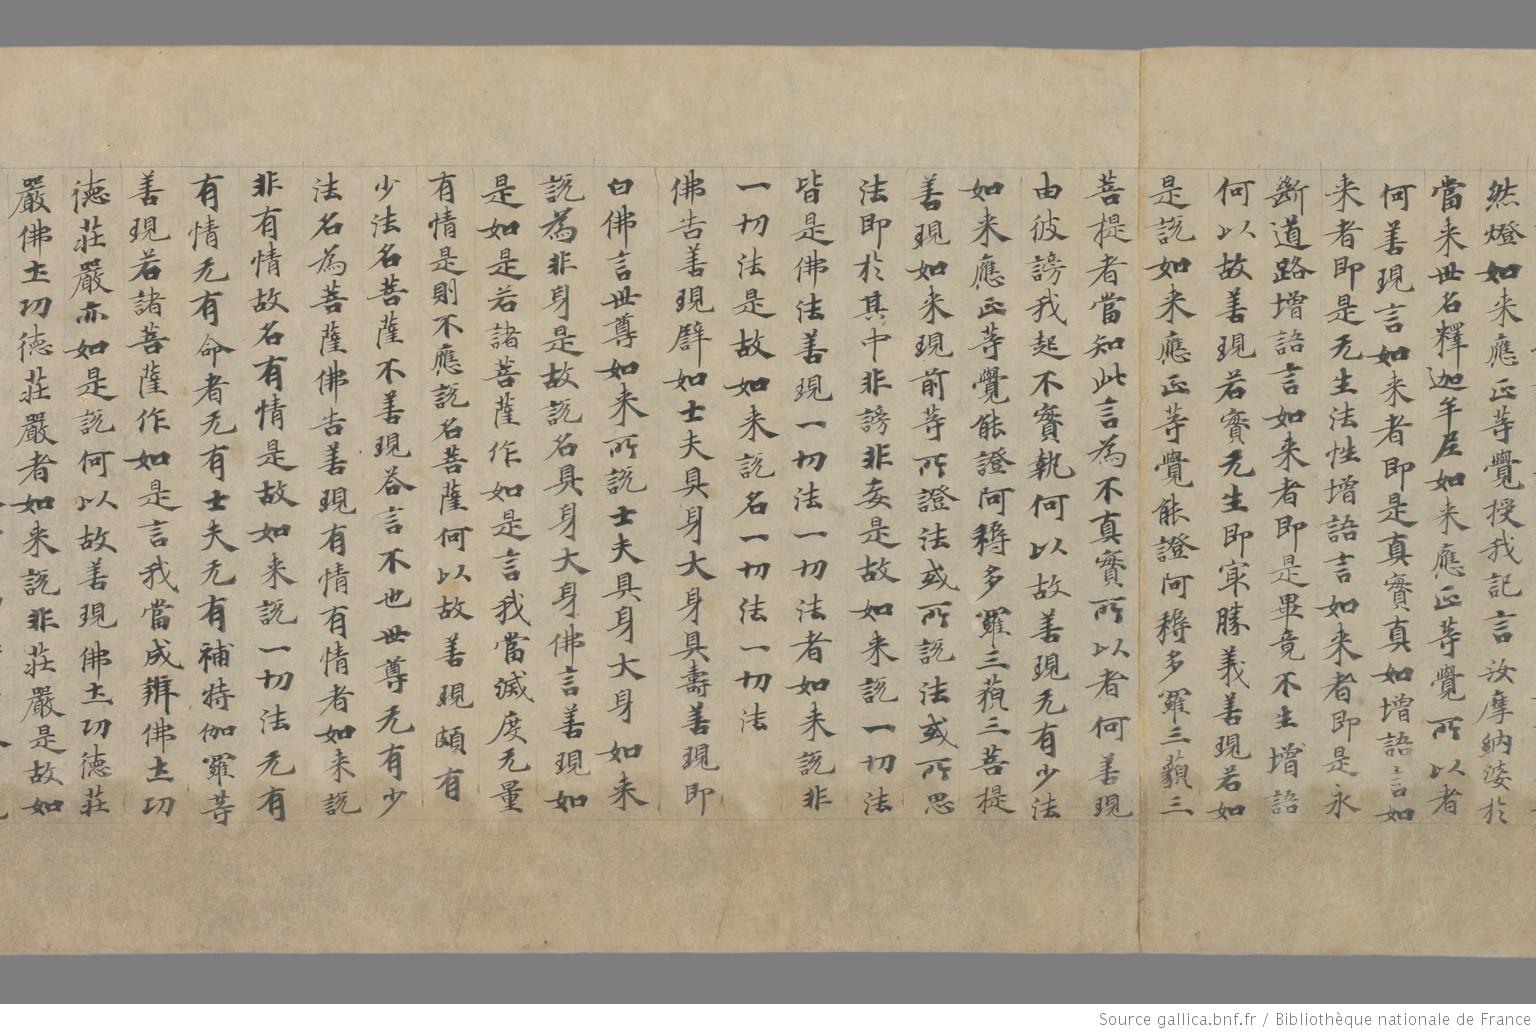 然燈如来應正等覺授我記言汝摩納婆於
當来世名釋迦牟尼如来應正等覺所以者
何善現言如来者即是真實真如增語言如
来者即是无生法性增語言如来者即是永
斷道路增語言如来者即是畢竟不生增語
何以故善現若實无生即㝡勝義善現若如
是說如来應正等覺能證阿耨多羅三藐三
菩提者當知此言為不真實所以者何善現
由彼謗我起不實執何以故善現无有少法
如来應正等覺能證阿耨多羅三藐三菩提
善現如来現前等所證法或所說法或所思
法即於其中非諦非妄是故如来說一切法
皆是佛法善現一切法一切法者如来說非
一切法是故如来說名一切法一切法
佛告善現譬如士夫具身大身具壽善現即
白佛言世尊如来所說士夫具身大身如来
說為非身是故說名具身大身佛言善現如
是如是若諸菩薩作如是言我當滅度无量
有情是則不應說名菩薩何以故善現頗有
少法名菩薩不善現荅言不也世尊无有少
法名為菩薩佛告善現有情有情者如来說
非有情故名有情是故如来說一切法无有
有情无有命者无有士夫无有補特伽羅等
善現若諸菩薩作如是言我當成辦佛土功
德莊嚴亦如是說何以故善現佛土功德莊
嚴佛土功德莊嚴者如来說非莊嚴是故如
Source gallica.bnf.fr / Bibliothèque nationale de France